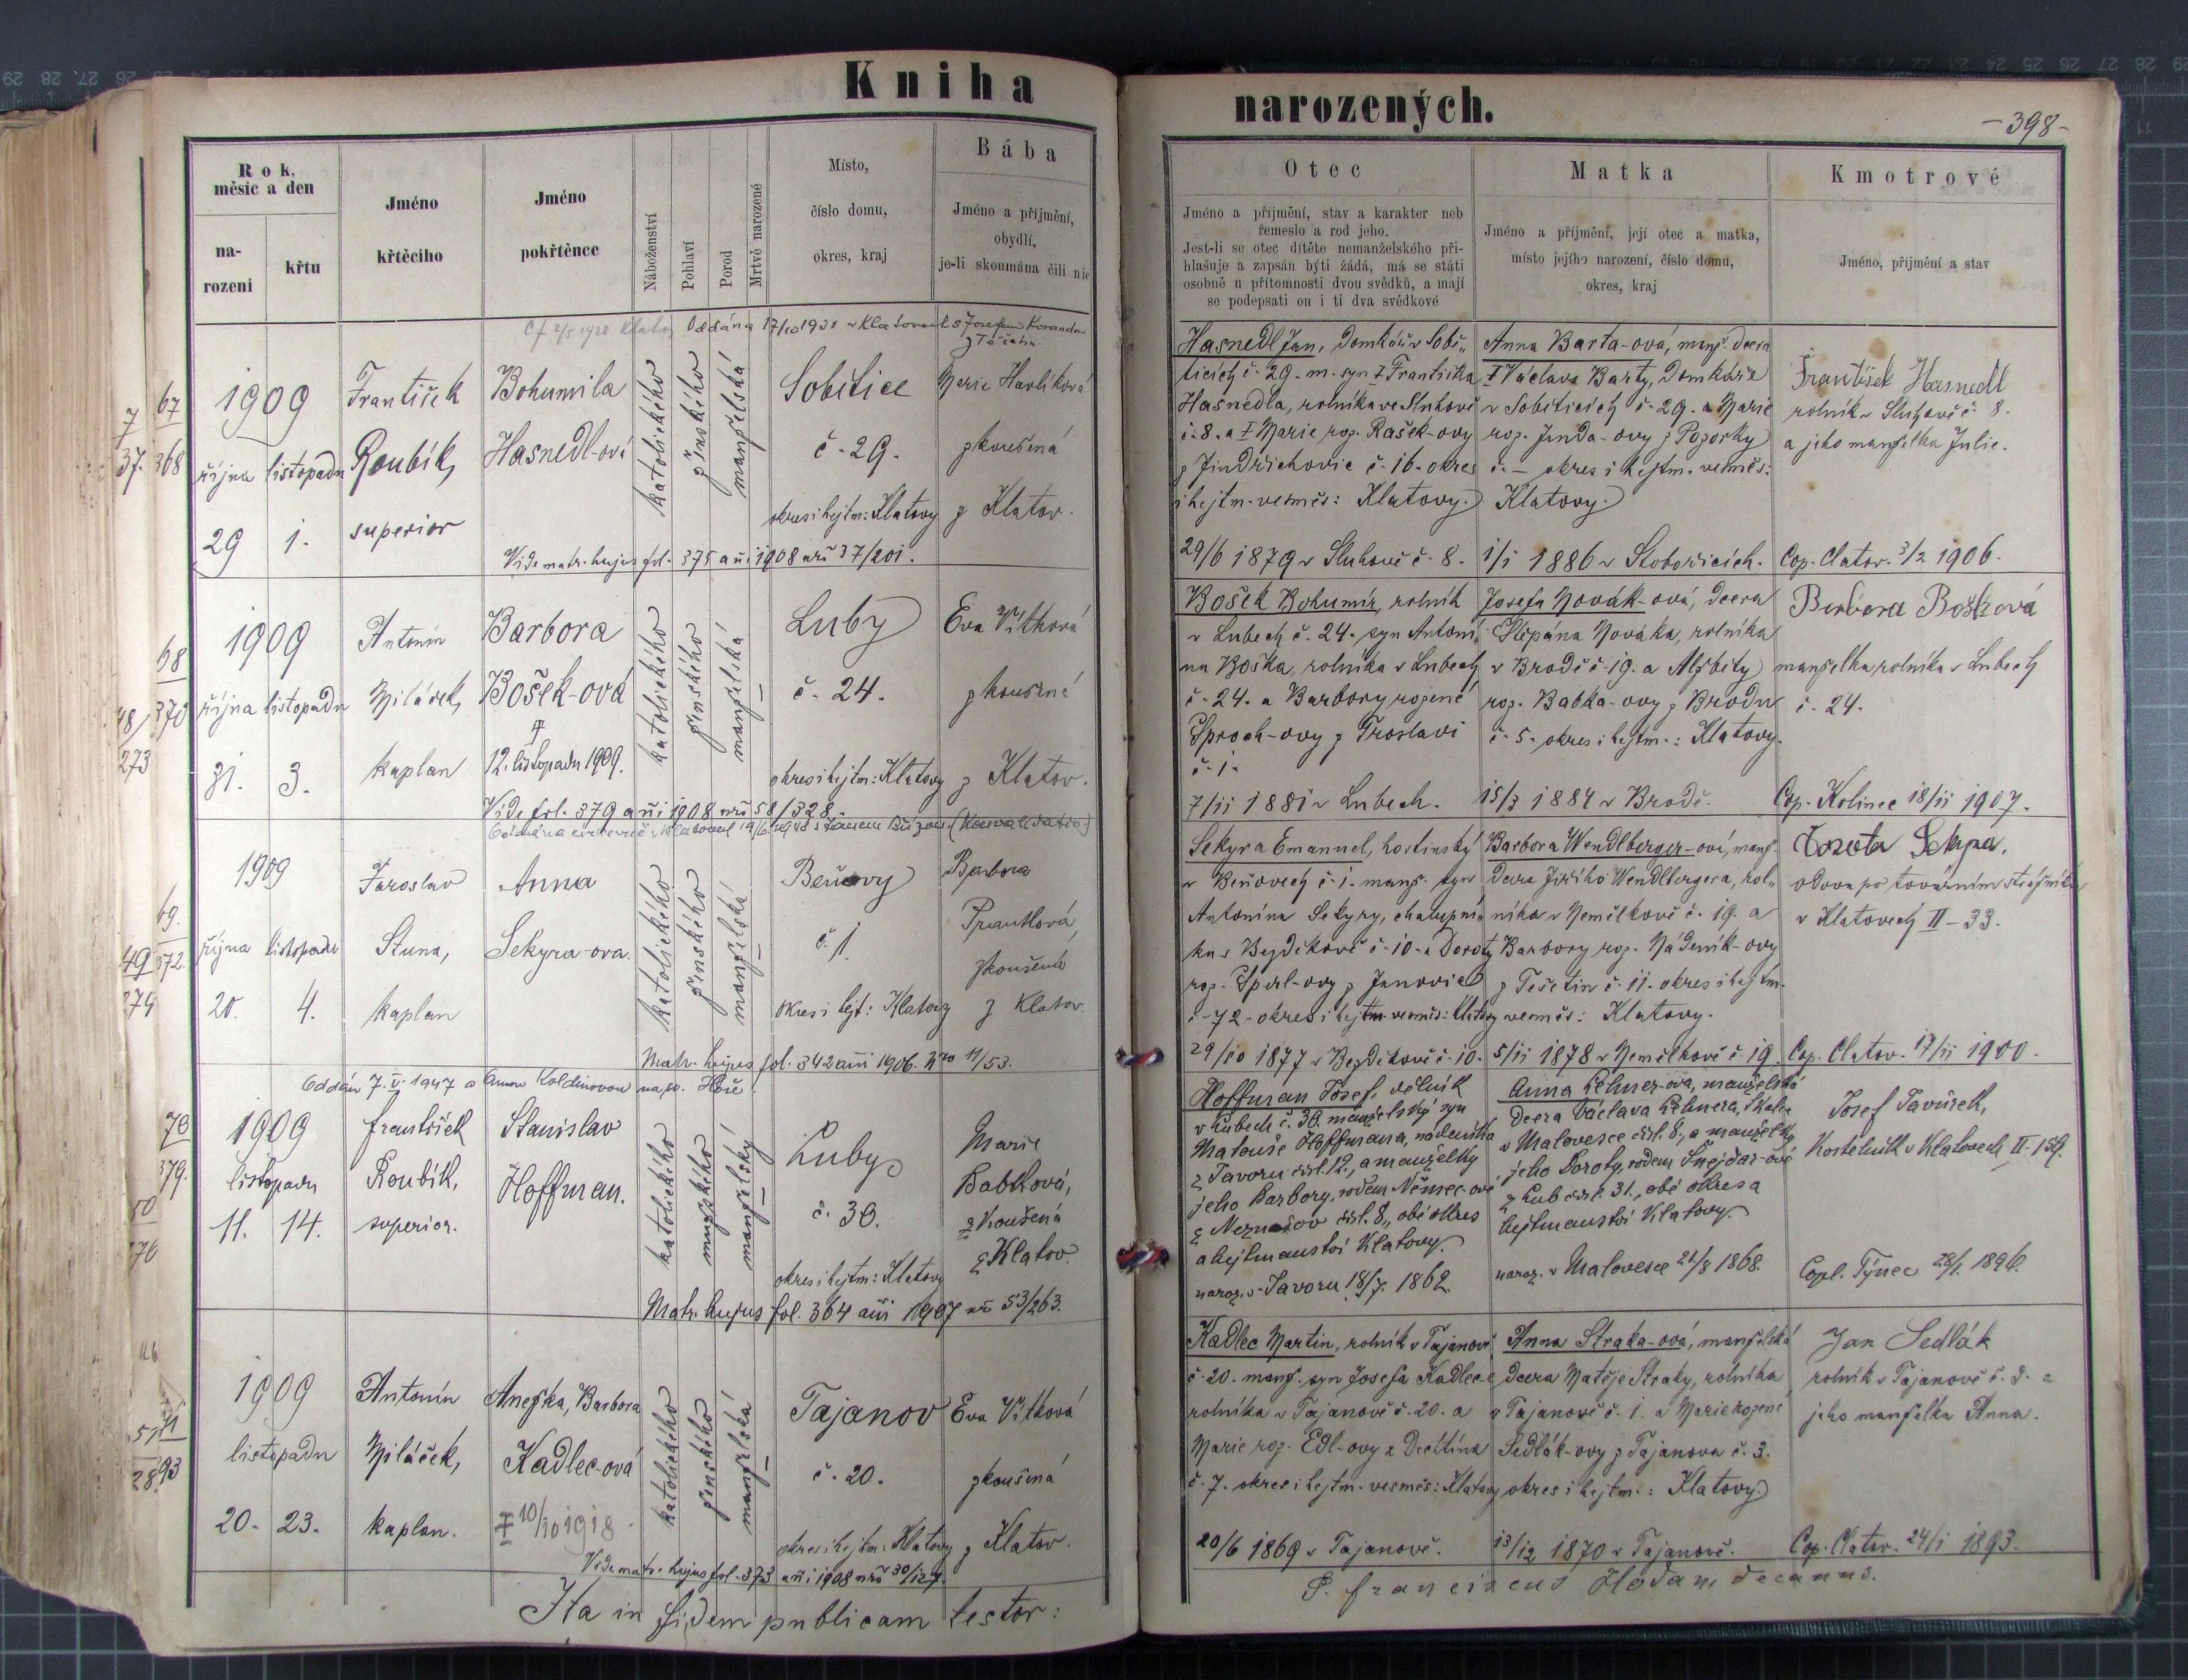 Kniha
narozených.
-398-
Rok,
měsíc a den
na-
rozeni
křtu
Jméno
křtěcího
Jméno
pokřtěnce
Náboženství
Pohlaví
Porod
Mrtvě narozené
Místo,
číslo domu,
okres, kraj
Bába
Jméno a příjmění,
obydlí,
je-li skoumána čili nic
Otec
Jméno a příjmění, stav a karakter neb
řemeslo a rod jeho.
Jest-li se otec dítěte nemanželského při-
hlašuje a zapsán býti žádá, má se státi
osobně u přítomnosti dvou svědků, a mají
se podepsati on i ti dva svědkové
Matka
Jméno a příjmění, její otec a matka,
místo jejího narození, číslo domu,
okres, kraj
Kmotrové
Jméno, příjmění a stav
Oddána 17/10 1931 v Klatovech s Josefem
67
368
1909
října listopadu
29 1.
František
Roubík,
superior
Bohumila
Hasnedl-ová
katolického
ženského
manželská
Sobětice
č. 29.
okres i hejtm: Klatovy
Marie Havlíková
zkoušená
z Klatov.
Vide matr. hujus fol. 375 anni 1908 nro 37/201.
Hasnedl Jan, domkář v Sobě-
ticích č. 29. m. syn Františka
Hasnedla, rolníka ve Sluhově
č. 8. a Marie roz. Rašek-ovy
z Jindřichovic č. 16. okres
i hejtm. vesměs: Klatovy.
29/6 1879 v Sluhově č. 8.
Anna Barta-ová, manž. dcera
Václava Barty, domkáře
v Soběticích č. 29. a Marie
roz. Jinda-ovy z Pozorky
č. – okres i hejtm. vesměs:
Klatovy.
1/1 1886 v
František Hasnedl
rolník v Sluhově č. 8.
a jeho manželka Julie.
Cop. Clatov. 3/2 1906.
68
370
273
1909
října listopadu
31. 3.
Antonín
Miláček,
kaplan
Barbora
Bošek-ová
12. listopadu 1909.
katolického
ženského
manželská
Luby
č. 24.
okres i hejtm: Klatovy
Eva Vítková
zkoušená
z Klatov.
Vide fol. 379 anni 1908 nro 58/328.
Bošek Bohumír, rolník
v Lubech č. 24. syn Antoní-
na Boška, rolníka v Lubech
č. 24. a Barbory rozené
Sproch-ovy z Troslavi
č. 1.
7/11 1881 v Lubech.
Josefa Novák-ová, dcera
Štěpána Nováka, rolníka
v Brodě č. 19. a Alžběty
roz. Babka-ovy z Brodu
č. 5. okres i hejtm.: Klatovy.
15/3 1884 v Brodě.
Barbora Bošková
manželka rolníka v Lubech
č. 24.
Cop. Kolinec 18/11 1907.
69.
372.
49
274
1909
října listopadu
20. 4.
Jaroslav
Stuna,
kaplan
Anna
Sekyra-ova.
katolického
ženského
manželská
Beňovy
č. 1.
okres i hejt: Klatovy
Barbora
zkoušená
z Klatov.
Matr. hujus fol. 342 anni 1906. Nro 11/53.
Sekyra Emanuel, hostinský
v Beňovech č. 1. manž. syn
Antonína Sekyry, chalupní-
ka v Bezděkově č. 10. a Doroty
roz. Šperl-ovy z Janovic
č. 72. okres i hejtm. vesměs: Klatovy
29/10 1877 v Bezděkově č. 10.
Barbora Wendlberger-ová, manž.
dcera Jiřího Wendlbergera, rol-
níka v Nemělkově č. 19. a
Barbory roz. Nádeník-ovy
z Tešetin č. 11. okres i hejtm.
vesměs: Klatovy.
5/11 1878 v Nemělkově č. 19.
vdova po továrním strážníku
v Klatovech II-33.
Cop. Clatov. 17/11 1900.
Oddán 7. V. 1947 s Annou Koldinovou na sv. Hoře
70
379.
50
276
1909
listopadu
11. 14.
František
Roubík,
superior.
Stanislav
Hoffman.
katolického
mužského
manželský
Luby
č. 30.
okres i hejtm: Klatovy
Marie
Babková,
zkoušená
z Klatov.
Matr. hujus fol. 364 anni 1907 nro 53/263.
Hoffman Josef, dělník
v Lubech č. 30. manželský syn
Matouše Hoffmana, nádeníka
z Javoru čísl. 12., a manželky
jeho Barbory, rodem Němec-ové
z Neznašov čísl. 8., obé okres
a hejtmanství Klatovy.
naroz. v Javoru 18/7. 1862.
Anna Lehner-ova, manželská
dcera Václava Lehnera,
v Malovesce čísl. 8., a manželky
jeho Doroty, rodem Šnejdar-ové
z Lub čísl. 31., obé okres a
hejtmanství Klatovy.
naroz. v Malovesce 21/8 1868.
Josef Tavürek,
Kostelník v Klatovech II-159.
Copl. Týnec 28/1. 1896.
71
93
51
28
1909
listopadu
20. 23.
Antonín
Miláček,
kaplan.
Anežka, Barbora
Kadlec-ová
10/10 1918
katolického
ženského
manželská
Tajanov
č. 20.
okres i hejtm: Klatovy
Eva Vítková
zkoušená
z Klatov.
Vide matr. hujus fol. 373 anni 1908 nro 30/127.
Kadlec Martin, rolník v Tajanově
č. 20. manž. syn Josefa Kadlece
rolníka v Tajanově č. 20. a
Marie roz. Edl-ovy z Dechtína
č. 7. okres i hejtm. vesměs: Klatovy
20/6 1869 v Tajanově.
Anna Straka-ová, manželská
dcera Matěje Straky, rolníka
v Tajanově č. 1. a Marie rozené
Sedlák-ovy z Tajanova č. 3.
okres i hejtm.: Klatovy.
13/12 1870 v Tajanově.
Jan Sedlák
rolník v Tajanově č. 3. a
jeho manželka Anna.
Cop. Clatov. 24/1 1893.
Ita in fidem publicam testor:
P. Franciscus Hodan, decanus.